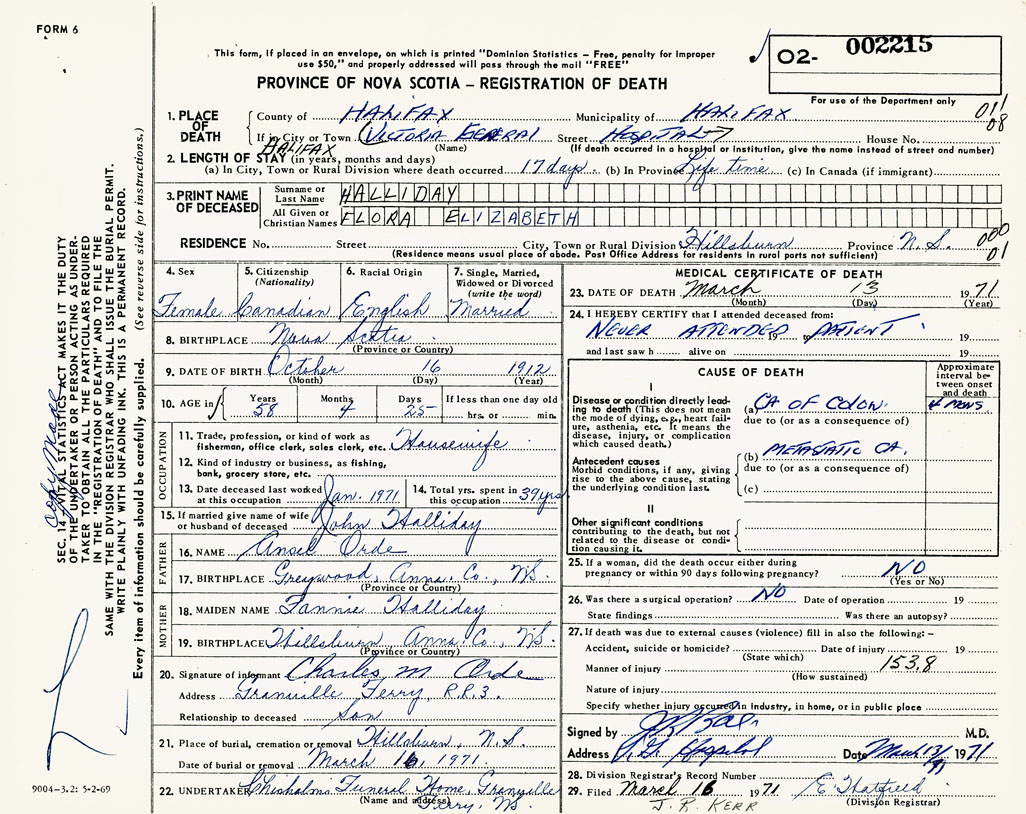 FORM 6
This form, If placed in an envelope, on which is printed "Dominion Statistics – Free, penalty for improper
use $50," and properly addressed will pass through the mail "FREE"
PROVINCE OF NOVA SCOTIA – REGISTRATION OF DEATH
O2- 002215
For use of the Department only
011
08
1. PLACE OF DEATH
County of HALIFAX Municipality of HALIFAX
If in City or Town (VICTORIA GENERAL Street HOSPITAL) House No.
HALIFAX (Name) (If death occurred in a hospital or institution, give the name instead of street and number)
2. LENGTH OF STAY (in years, months and days)
(a) In City, Town or Rural Division where death occurred 17 days (b) In Province Life time (c) In Canada (if immigrant)
3. PRINT NAME OF DECEASED
Surname or Last Name HALLIDAY
All Given or Christian Names FLORA ELIZABETH
RESIDENCE No. Street City, Town or Rural Division Hillsburn Province N.S.
000
01
(Residence means usual place of abode. Post Office Address for residents in rural parts not sufficient)
4. Sex
Female
5. Citizenship
(Nationality)
Canadian
6. Racial Origin
English
7. Single, Married,
Widowed or Divorced
(write the word)
Married
8. BIRTHPLACE Nova Scotia
(Province or Country)
9. DATE OF BIRTH October 16 1912
(Month) (Day) (Year)
10. AGE in Years Months Days If less than one day old
58 4 25 hrs. or min.
OCCUPATION
11. Trade, profession, or kind of work as
fisherman, office clerk, sales clerk, etc. Housewife
12. Kind of industry or business, as fishing,
bank, grocery store, etc.
13. Date deceased last worked
at this occupation Jan. 1971
14. Total yrs. spent in
this occupation 39 yrs
15. If married give name of wife
or husband of deceased John Halliday
FATHER
16. NAME Ansel Orde
17. BIRTHPLACE Greywood, Anna. Co., NS
(Province or Country)
MOTHER
18. MAIDEN NAME Fannie Halliday
19. BIRTHPLACE Hillsburn Anna. Co., NS.
(Province or Country)
20. Signature of informant Charles M Orde
Address Granville Ferry, R.R.3.
Relationship to deceased Son
21. Place of burial, cremation or removal Hillsburn, N.S.
Date of burial or removal March 16, 1971.
22. UNDERTAKER Chisholm's Funeral Home, Granville
(Name and address) Ferry, NS.
MEDICAL CERTIFICATE OF DEATH
23. DATE OF DEATH March 13 1971
(Month) (Day) (Year)
24. I HEREBY CERTIFY that I attended deceased from:
NEVER ATTENDED 19 to PATIENT 19
and last saw h alive on 19
CAUSE OF DEATH
Approximate interval between onset and death
I
Disease or condition directly leading to death (This does not
mean the mode of dying, e.g., heart failure, asthenia, etc. It means the
disease, injury, or complication
which caused death.)
(a) CA OF COLON. 4 MONS.
due to (or as a consequence of)
Antecedent causes
Morbid conditions, if any, giving
rise to the above cause, stating
the underlying condition last.
(b) METASTATIC CA.
due to (or as a consequence of)
(c)
II
Other significant conditions
contributing to the death, but not
related to the disease or condition causing it.
25. If a woman, did the death occur either during
pregnancy or within 90 days following pregnancy? NO
(Yes or No)
26. Was there a surgical operation? NO Date of operation 19
State findings Was there an autopsy?
27. If death was due to external causes (violence) fill in also the following: –
Accident, suicide or homicide? Date of injury 19
(State which)
Manner of injury 153.8
(How sustained)
Nature of injury
Specify whether injury occurred in industry, in home, or in public place
Signed by M.D.
Address V.G. Hospital Date March 13/ 1971
28. Division Registrar's Record Number
29. Filed March 16 1971 E Thatfield
J. R. KERR (Division Registrar)
SEC. 14 VITAL STATISTICS ACT MAKES IT THE DUTY
OF THE UNDERTAKER OR PERSON ACTING AS UNDER-
TAKER TO OBTAIN ALL THE PARTICULARS REQUIRED
IN THE "REGISTRATION OF DEATH" AND TO FILE THE
SAME WITH THE DIVISION REGISTRAR WHO SHALL ISSUE THE BURIAL PERMIT.
WRITE PLAINLY WITH UNFADING INK. THIS IS A PERMANENT RECORD.
Every item of information should be carefully supplied. (See reverse side for instructions.)
copy made
9004-3.2: 5-2-69